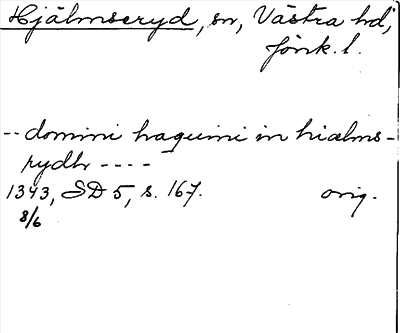 Hjälmseryd, sn, Västra hd,
Jönk. l.
-- domini haquini in hiælms-
rydh ----
1343, SD 5, s. 167. orig.
8/6